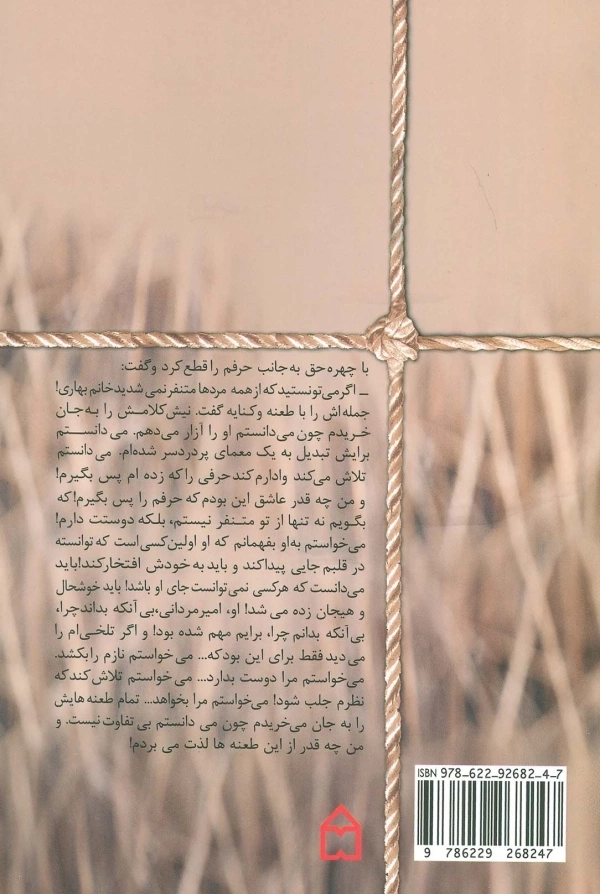 با چهره حق به جانب حرفم را قطع کرد و گفت:
ـ اگر می تونستید که از همه مردها متنفر نمی شدید خانم بهاری!
جمله اش را با طعنه و کنایه گفت. نیش کلامش را به جان
خریدم چون می دانستم او را آزار می دهم. می دانستم
برایش تبدیل به یک معمای پردردسر شده ام. می دانستم
تلاش می کند وادارم کند حرفی را که زده ام پس بگیرم!
و من چه قدر عاشق این بودم که حرفم را پس بگیرم! که
بگویم نه تنها از تو متنفر نیستم، بلکه دوستت دارم!
می خواستم به او بفهمانم که او اولین کسی است که توانسته
در قلبم جایی پیدا کند و باید به خودش افتخار کند! باید
می دانست که هرکسی نمی توانست جای او باشد! باید خوشحال
و هیجان زده می شد! او، امیرمردانی، بی آنکه بداند چرا،
بی آنکه بدانم چرا، برایم مهم شده بود! و اگر تلخی ام را
می دید فقط برای این بود که... می خواستم نازم را بکشد.
می خواستم مرا دوست بدارد... می خواستم تلاش کند که
نظرم جلب شود! می خواستم مرا بخواهد... تمام طعنه هایش
را به جان می خریدم چون می دانستم بی تفاوت نیست. و
من چه قدر از این طعنه ها لذت می بردم!
ISBN 978-622-92682-4-7
9 786229 268247